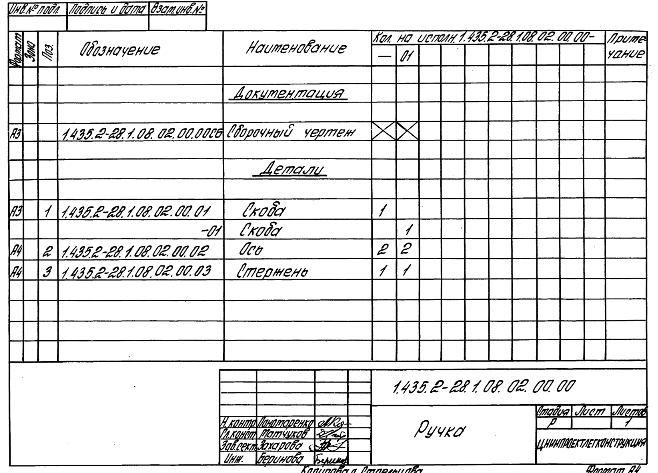 Инв.№ подл. Подпись и дата Взам.инв.№
Формат Зона Поз. Обозначение Наименование Кол. на исполн. 1.435.2-28.1.08.02.00.00- Приме-
чание
— 01
Документация
А3 1.435.2-28.1.08.02.00.00СБ Сборочный чертеж
Детали
А3 1 1.435.2-28.1.08.02.00.01 Скоба 1
-01 Скоба 1
А4 2 1.435.2-28.1.08.02.00.02 Ось 2 2
А4 3 1.435.2-28.1.08.02.00.03 Стержень 1 1
1.435.2-28.1.08.02.00.00
Н.контр. Пономаренко
Гл.конст. Матчуков
Зав.сект. Захарова
Инж. Беринова
Ручка
Стадия Лист Листов
Р 1
ЦНИИПРОЕКТЛЕГКОНСТРУКЦИЯ
Копировал Формат А4